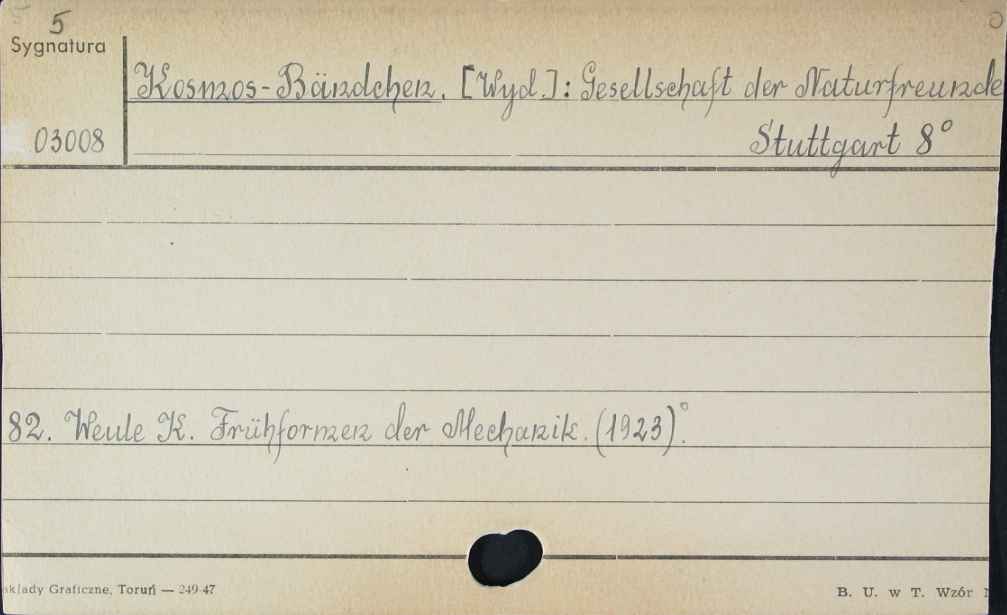 5
Sygnatura
Kosmos-Bändchen. [Wyd.]: Gesellschaft der Naturfreunde
03008
Stuttgart 8°
82. Weule K. Frühformen der Mechanik. (1923).°
Graficzne, Toruń — 249-47
B. U. w T. Wzór